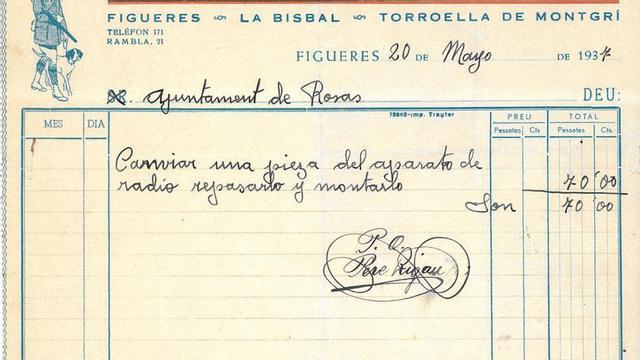 FIGUERES ∾ LA BISBAL ∾ TORROELLA DE MONTGRÍ
TELÈFON 171
RAMBLA, 21
FIGUERES 20 DE Mayo DE 1937
Ajuntament de Rosas DEU:
75862-imp. Trayter
MES DIA PREU TOTAL
Pessetes Cts. Pessetes Cts.
Canviar una pieza del aparato de
radio repasarlo y montarlo 70'00
Son 70'00
P. O.
Pere Rigau